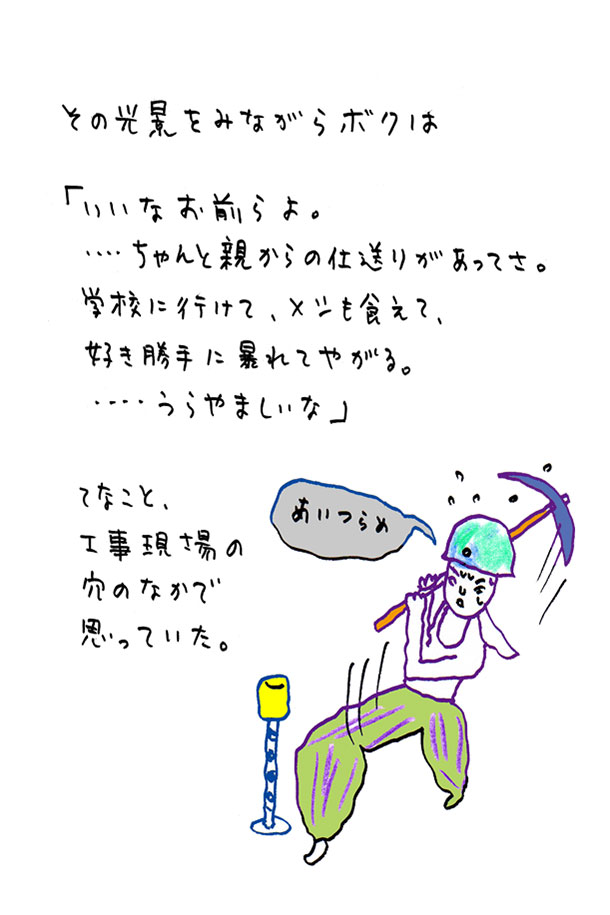 その光景をみながらボクは
「いいなお前らよ。
‥‥ちゃんと親からの仕送りがあってさ。
学校に行けて、メシも食えて、
好き勝手に暴れてやがる。
‥‥うらやましいな」
てなこと、
工事現場の
穴のなかで
思っていた。
あいつらめ